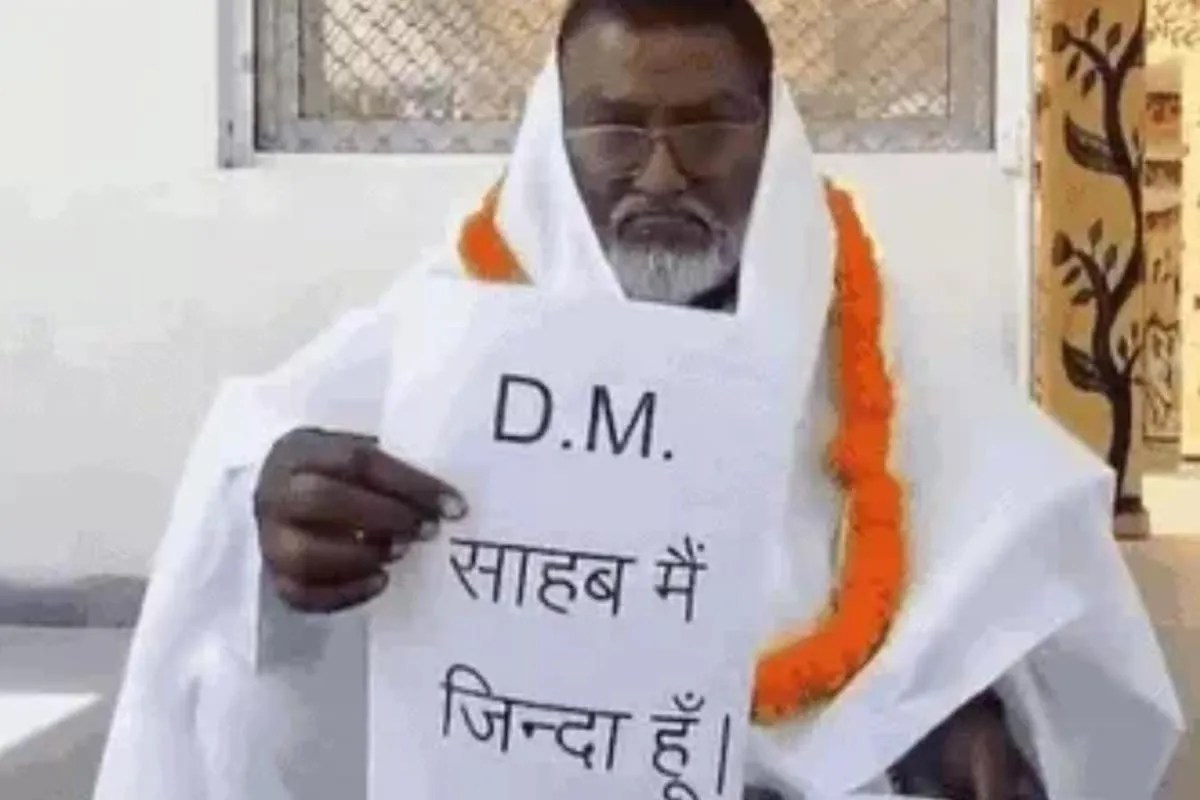 D.M.
साहब मैं
जिन्दा हूँ।